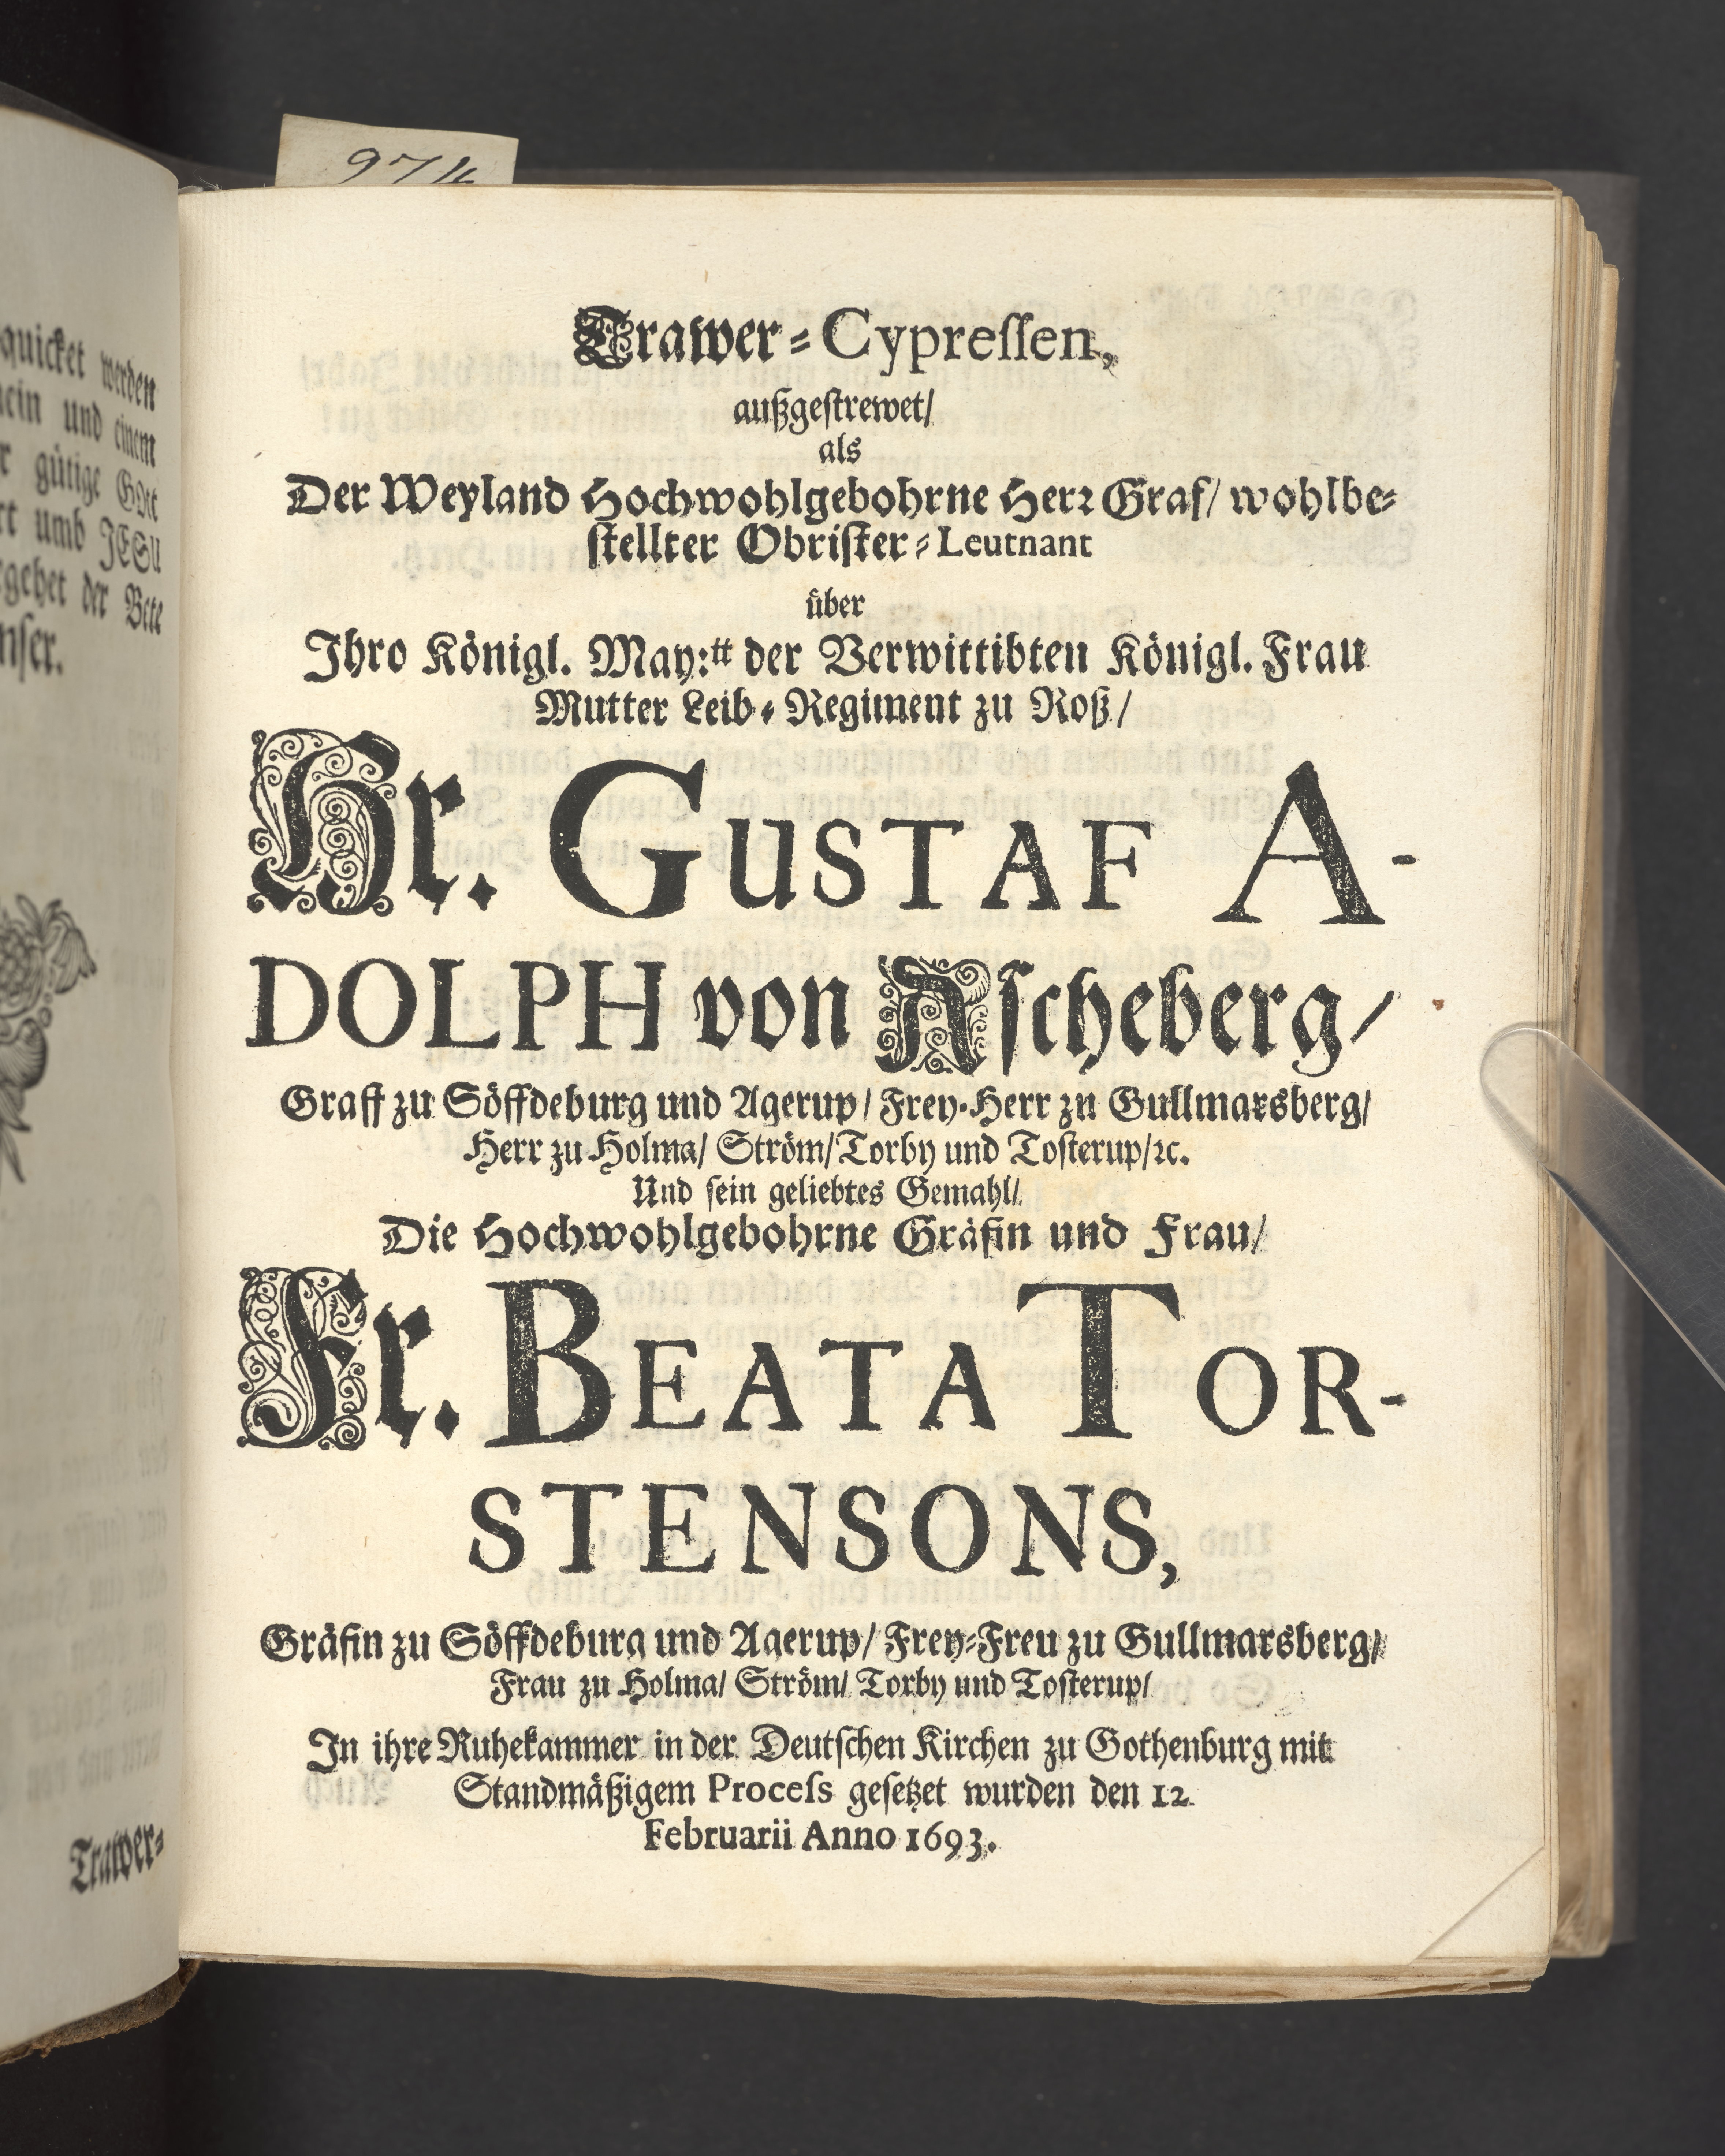 974
quicket werden
und einem
gütige GOtt
umb JESU
gehet der Bete
nser.
Trawer=
Trawer=Cypreſſen,
außgeſtrewet/
als
Der Weyland Hochwohlgebohrne Herr Graf/ wohlbe=
ſtellter Obriſter=Leutnant
über
Ihro Königl. May:tt der Verwittibten Königl. Frau
Mutter Leib=Regiment zu Roß/
Hr. GUSTAF A-
DOLPH von Aſcheberg/
Graff zu Söffdeburg und Agerup/ Frey=Herr zu Gullmarsberg/
Herr zu Holma/ Ström/ Torby und Toſterup/ꝛc.
Und ſein geliebtes Gemahl/
Die Hochwohlgebohrne Gräfin und Frau/
Fr. BEATA TOR-
STENSONS,
Gräfin zu Söffdeburg und Agerup/ Frey=Freu zu Gullmarsberg/
Frau zu Holma/ Ström/ Torby und Toſterup/
In ihre Ruhekammer in der Deutſchen Kirchen zu Gothenburg mit
Standmäßigem Proceſs geſetzet wurden den 12
Februarii Anno 1693.